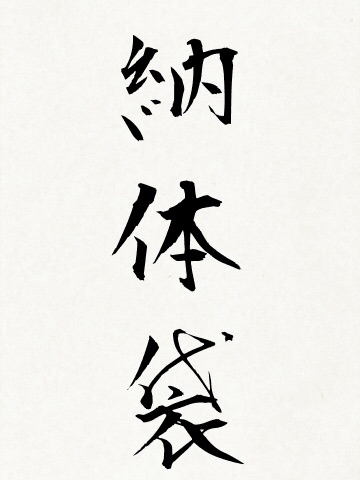 納体袋